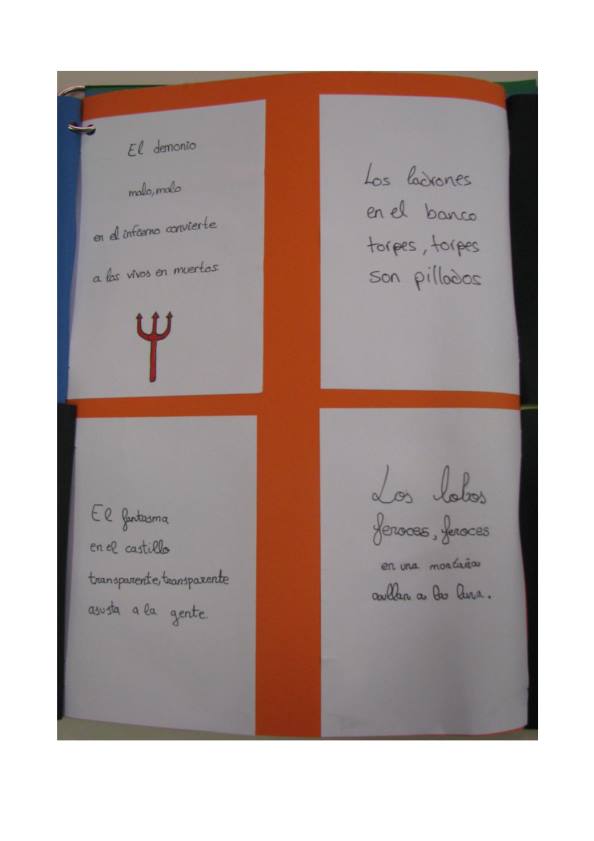 El demonio
malo, malo
en el infierno convierte
a los vivos en muertos
Los ladrones
en el banco
torpes, torpes
son pillados
El fantasma
en el castillo
transparente, transparente
asusta a la gente.
Los lobos
feroces, feroces
en una montaña
aullan a la luna.